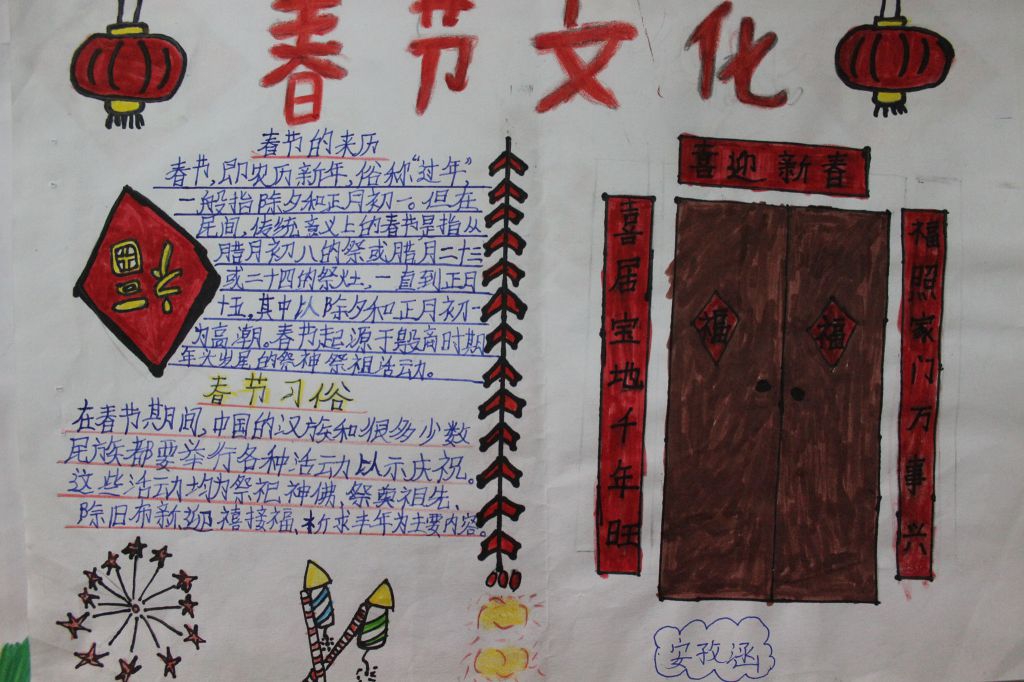 春节文化
春节的来历
春节,即农历新年,俗称“过年”,
一般指除夕和正月初一。但在
民间,传统意义上的春节是指从
腊月初八的祭或腊月二十三
或二十四的祭灶,一直到正月
十五,其中以除夕和正月初一
为高潮。春节起源于殷商时期
年头岁尾的祭神祭祖活动。
春节习俗
在春节期间,中国的汉族和很多少数
民族都要举行各种活动以示庆祝。
这些活动均为祭祀神佛、祭奠祖先、
除旧布新、迎禧接福、祈求丰年为主要内容。
福
喜迎新春
喜居宝地千年旺
福照家门万事兴
福
福
安孜涵